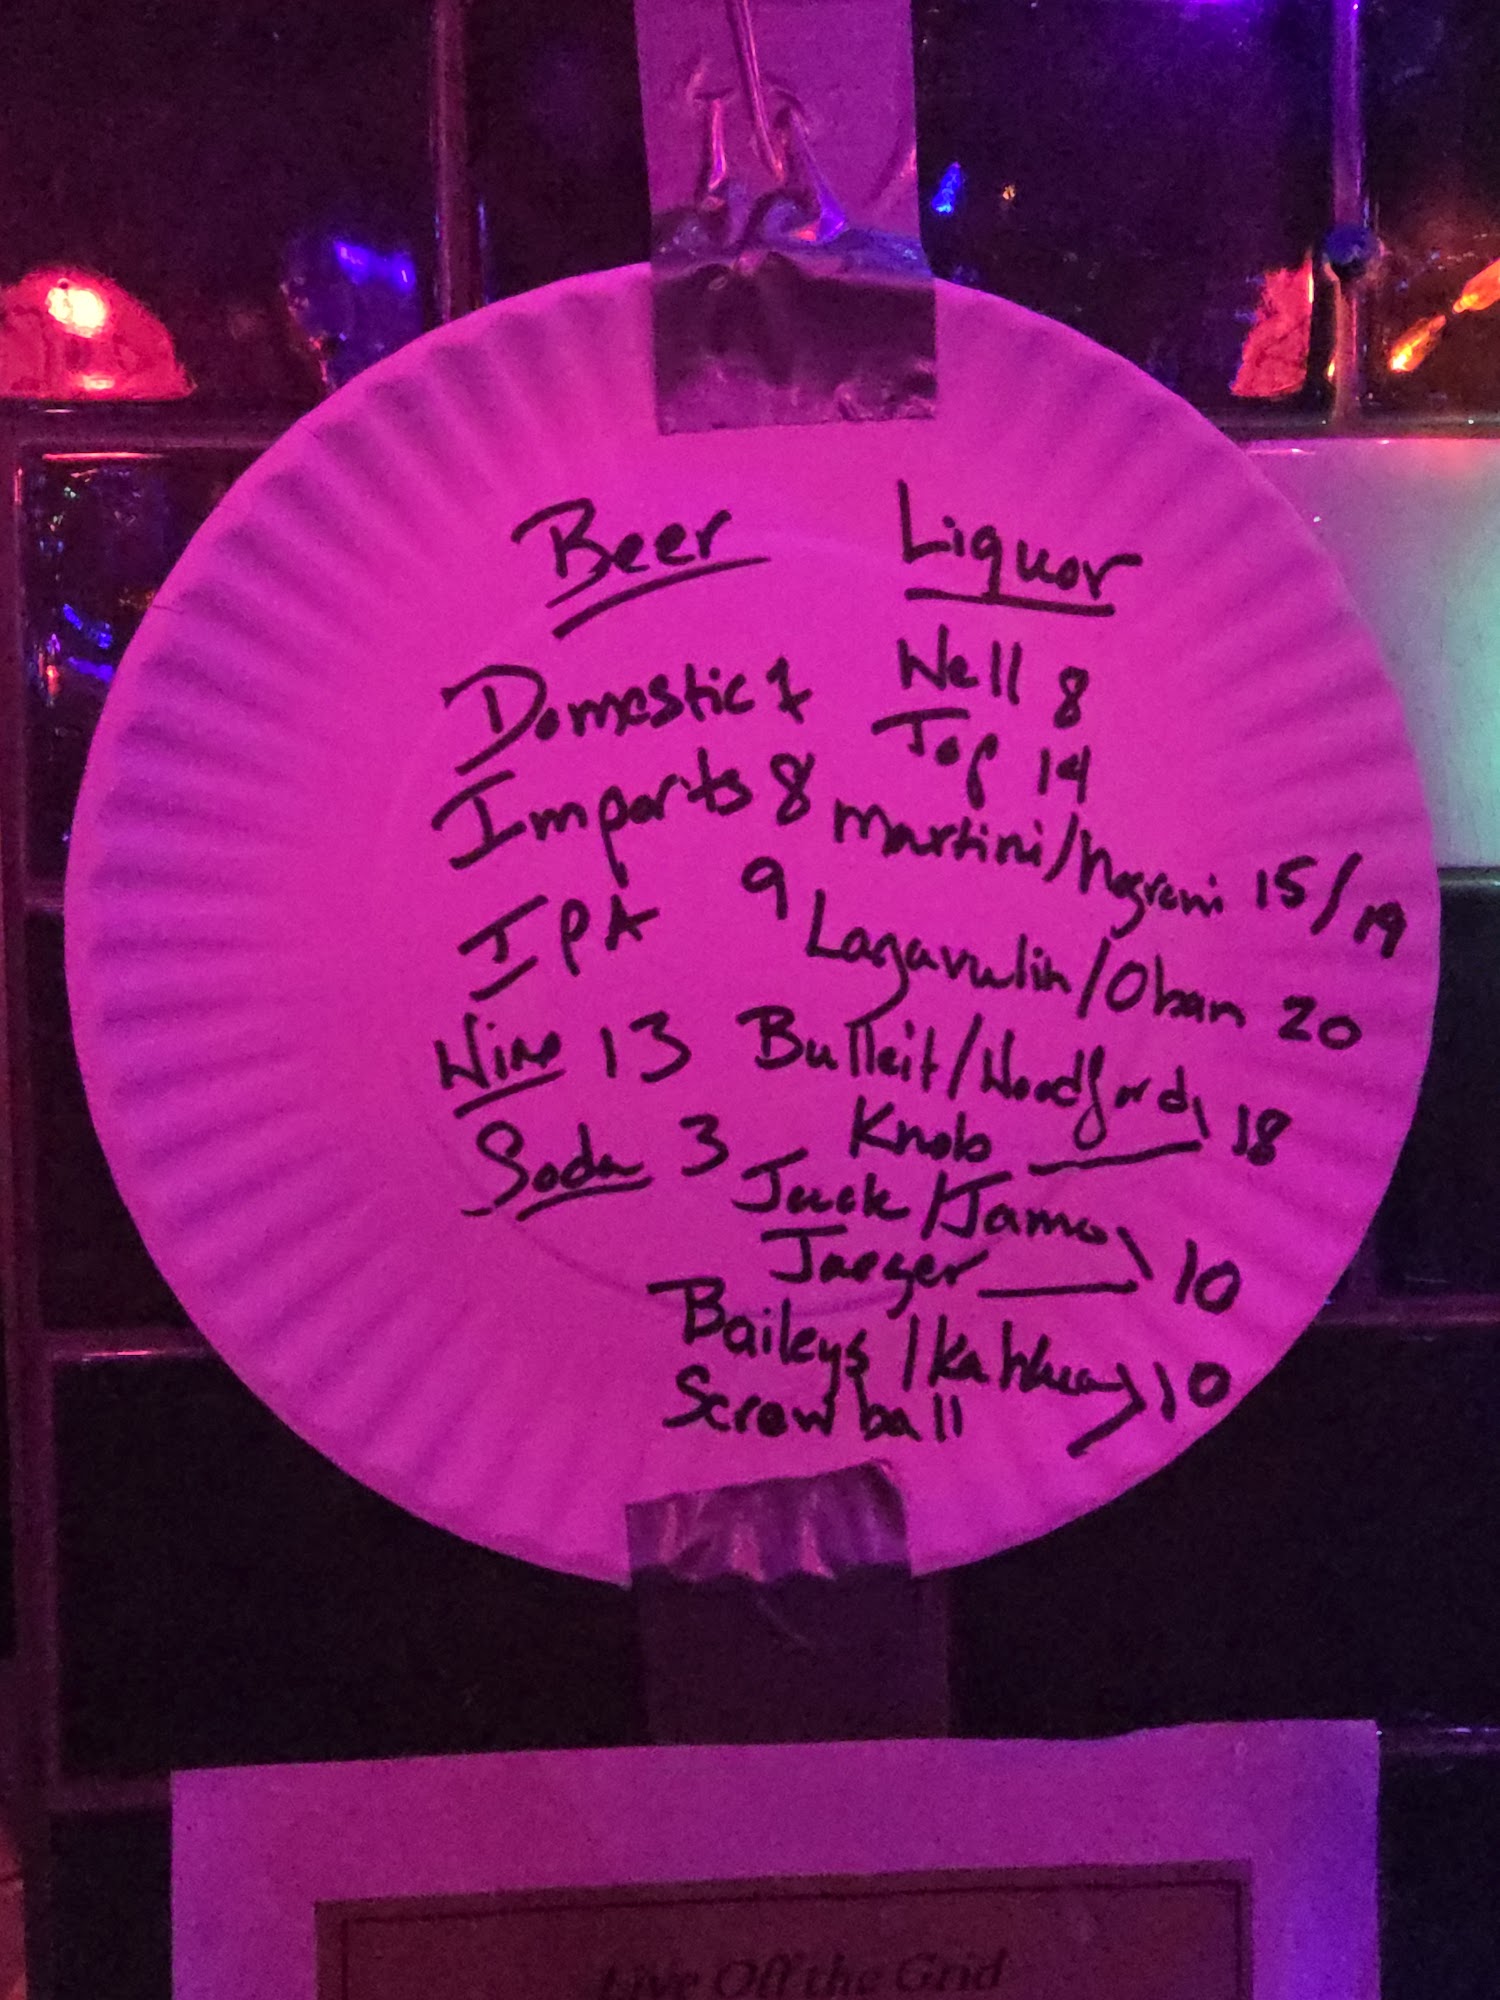 Beer
Domestic 7
Imports 8
IPA 9
Wine 13
Soda 3
Liquor
Well 8
Top 14
Martini/Negroni 15/19
Lagavulin/Oban 20
Bulleit/Woodford
Knob 18
Jack/Jamo
Jaeger 10
Baileys/Kahlua 10
Screwball
Live Off the Grid